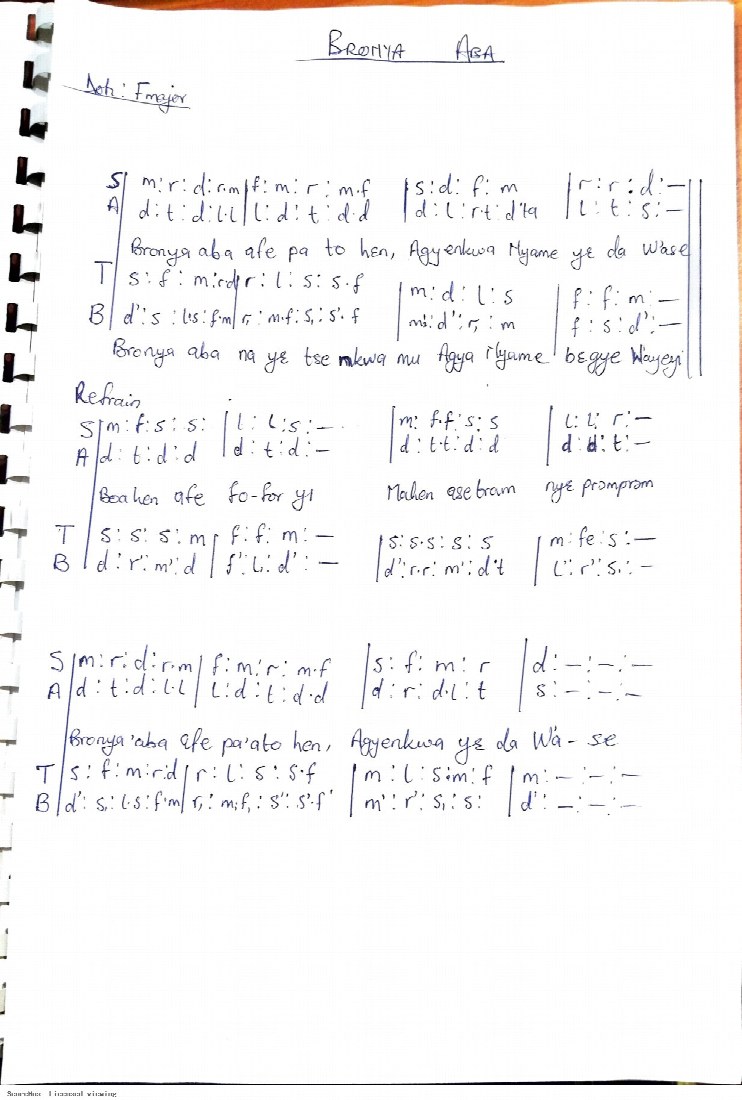 BRONYA ABA
Doh: Fmajor
S | m : r : d : r.m | f : m : r : m.f | s : d : f : m | r : r : d : — ||
A | d : t : d : l.l | l : d : t : d.d | d : l : r.t : d'ta | l : t : s : — ||
Bronya aba afe pa to hen, Agyenkwa Nyame yɛ da Wase
T | s : f : m : r.d | r : l : s : s.f | m : d : l : s | f : f : m : —
B | d' : s : l.s : f.m | r, : m.f : s, : s'. f | m' : d' : r, : m | f : s : d' : —
Bronya aba na yɛ tse nkwa mu Agya Nyame bɛgye Wayeyi
Refrain
S | m : f : s : s : | l : l : s : — | m : f.f : s : s | l : l : r : —
A | d : t : d : d | d : t : d : — | d : t.t : d : d | d : d : t : —
Boa hen afe fo-for yi Mahen asetram nyɛ prɔmprɔm
T | s : s : s : m | f : f : m : — | s : s.s : s : s | m : fe : s : —
B | d : r' : m' : d | f' : l, : d' : — | d' : r.r : m' : d't | l' : r' : s, : —
S | m : r : d : r.m | f : m : r : m.f | s : f : m : r | d : — : — : —
A | d : t : d : l.l | l : d : t : d.d | d : r : d.l : t | s : — : — : —
Bronya 'aba afe pa'ato hen, Agyenkwa yɛ da Wa - se
T | s : f : m : r.d | r : l : s : s.f | m : l : s.m : f | m : — : — : —
B | d' : s, : l.s : f.m | r, : m.f, : s' : s'.f' | m' : r' : s, : s : | d' : — : — : —